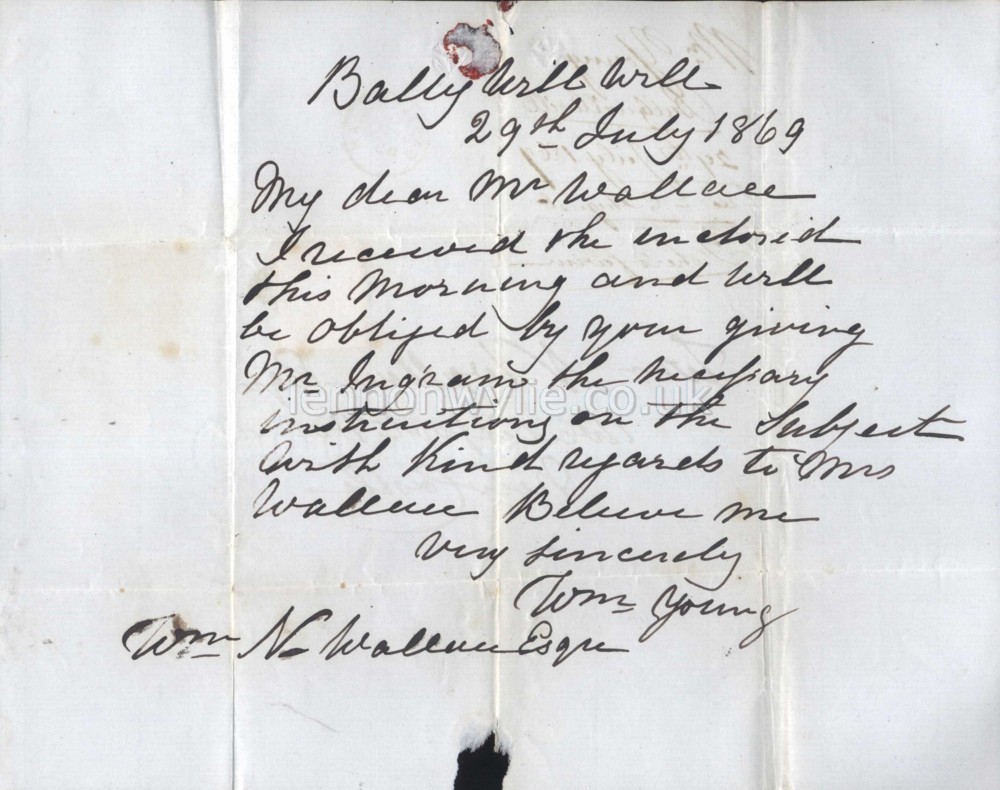 BallyWill Will
29th July 1869
My dear Mr Wallace
I received the inclosed
this Morning and Will
be obliged by your giving
Mr Ingram the necessary
instructions on the Subject
With Kind regards to Mrs
Wallace Believe me
very sincerely
Wm Young
Wm N Wallace Esqre
lennonwylie.co.uk